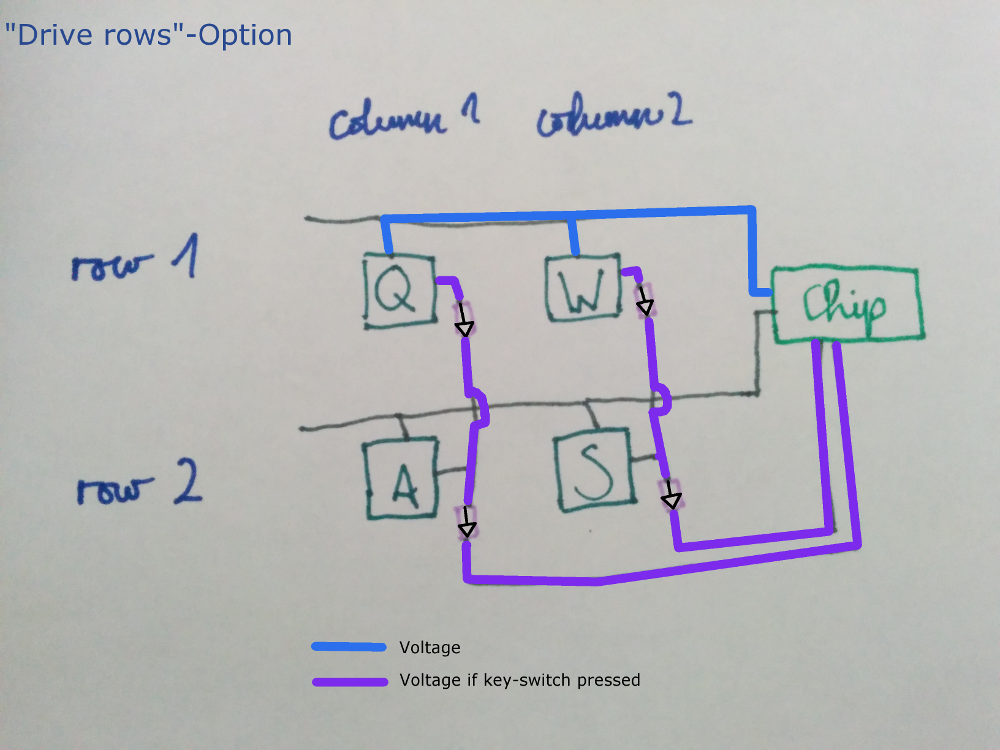 "Drive rows"-Option
column 1 column 2
row 1
Q W Chip
row 2
A S
Voltage
Voltage if key-switch pressed